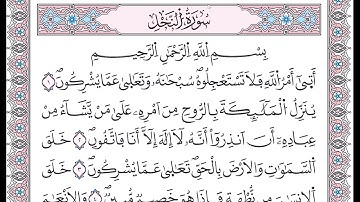 سُورَةُ النَّحْلِ
بِسْمِ اللَّهِ الرَّحْمَٰنِ الرَّحِيمِ
أَتَىٰ أَمْرُ اللَّهِ فَلَا تَسْتَعْجِلُوهُ سُبْحَانَهُ وَتَعَالَىٰ عَمَّا يُشْرِكُونَ ١
يُنَزِّلُ الْمَلَائِكَةَ بِالرُّوحِ مِنْ أَمْرِهِ عَلَىٰ مَنْ يَشَاءُ مِنْ
عِبَادِهِ أَنْ أَنْذِرُوا أَنَّهُ لَا إِلَٰهَ إِلَّا أَنَا فَاتَّقُونِ ٢ خَلَقَ
السَّمَٰوَاتِ وَالْأَرْضَ بِالْحَقِّ تَعَالَىٰ عَمَّا يُشْرِكُونَ ٣ خَلَقَ
الْإِنْسَانَ مِنْ نُطْفَةٍ فَإِذَا هُوَ خَصِيمٌ مُبِينٌ ٤ وَالْأَنْعَامَ